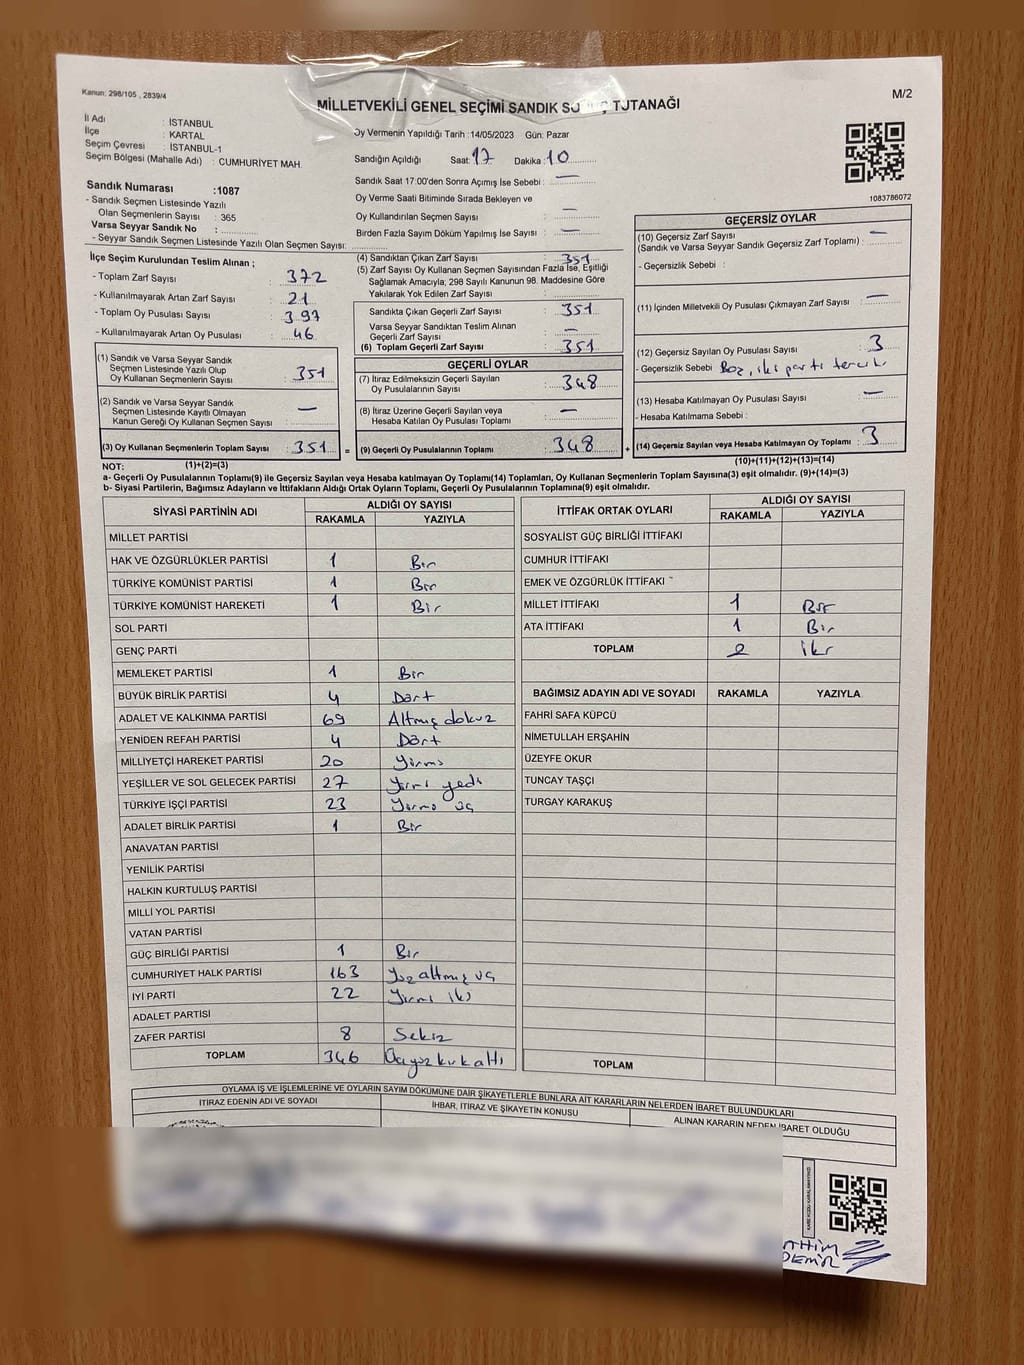 Kanun: 298/105 , 2839/4
M/2
MİLLETVEKİLİ GENEL SEÇİMİ SANDIK TUTANAĞI
İl Adı : İSTANBUL
İlçe : KARTAL
Seçim Çevresi : İSTANBUL-1
Seçim Bölgesi (Mahalle Adı) : CUMHURİYET MAH.
Oy Vermenin Yapıldığı Tarih :14/05/2023 Gün: Pazar
Sandığın Açıldığı Saat: 17 Dakika: 10
Sandık Saat 17:00'den Sonra Açımış İse Sebebi : —
Oy Verme Saati Bitiminde Sırada Bekleyen ve
Oy Kullandırılan Seçmen Sayısı : —
Birden Fazla Sayım Döküm Yapılmış İse Sayısı : —
1083786072
Sandık Numarası :1087
- Sandık Seçmen Listesinde Yazılı
Olan Seçmenlerin Sayısı : 365
Varsa Seyyar Sandık No :
- Seyyar Sandık Seçmen Listesinde Yazılı Olan Seçmen Sayısı:
İlçe Seçim Kurulundan Teslim Alınan ;
- Toplam Zarf Sayısı : 372
- Kullanılmayarak Artan Zarf Sayısı : 21
- Toplam Oy Pusulası Sayısı : 397
- Kullanılmayarak Artan Oy Pusulası : 46
(1) Sandık ve Varsa Seyyar Sandık
Seçmen Listesinde Yazılı Olup
Oy Kullanan Seçmenlerin Sayısı : 351
(2) Sandık ve Varsa Seyyar Sandık
Seçmen Listesinde Kayıtlı Olmayan
Kanun Gereği Oy Kullanan Seçmen Sayısı : —
(3) Oy Kullanan Seçmenlerin Toplam Sayısı : 351 =
(1)+(2)=(3)
(4) Sandıktan Çıkan Zarf Sayısı : 351
(5) Zarf Sayısı Oy Kullanan Seçmen Sayısından Fazla İse, Eşitliği
Sağlamak Amacıyla, 298 Sayılı Kanunun 98. Maddesine Göre
Yakılarak Yok Edilen Zarf Sayısı :
Sandıkta Çıkan Geçerli Zarf Sayısı : 351
Varsa Seyyar Sandıktan Teslim Alınan
Geçerli Zarf Sayısı : —
(6) Toplam Geçerli Zarf Sayısı : 351
GEÇERLİ OYLAR
(7) İtiraz Edilmeksizin Geçerli Sayılan
Oy Pusulalarının Sayısı : 348
(8) İtiraz Üzerine Geçerli Sayılan veya
Hesaba Katılan Oy Pusulası Toplamı : —
(9) Geçerli Oy Pusulalarının Toplamı : 348 +
GEÇERSİZ OYLAR
(10) Geçersiz Zarf Sayısı : —
(Sandık ve Varsa Seyyar Sandık Geçersiz Zarf Toplamı) :
- Geçersizlik Sebebi :
(11) İçinden Milletvekili Oy Pusulası Çıkmayan Zarf Sayısı : —
(12) Geçersiz Sayılan Oy Pusulası Sayısı : 3
- Geçersizlik Sebebi : Boş, iki parti tercih
(13) Hesaba Katılmayan Oy Pusulası Sayısı : —
- Hesaba Katılmama Sebebi :
(14) Geçersiz Sayılan veya Hesaba Katılmayan Oy Toplamı : 3
(10)+(11)+(12)+(13)=(14)
NOT:
a- Geçerli Oy Pusulalarının Toplamı(9) ile Geçersiz Sayılan veya Hesaba katılmayan Oy Toplamı(14) Toplamları, Oy Kullanan Seçmenlerin Toplam Sayısına(3) eşit olmalıdır. (9)+(14)=(3)
b- Siyasi Partilerin, Bağımsız Adayların ve İttifakların Aldığı Oyların Toplamı, Geçerli Oy Pusulalarının Toplamına(9) eşit olmalıdır.
SİYASİ PARTİNİN ADI ALDIĞI OY SAYISI
RAKAMLA YAZIYLA
MİLLET PARTİSİ
HAK VE ÖZGÜRLÜKLER PARTİSİ 1 Bir
TÜRKİYE KOMÜNİST PARTİSİ 1 Bir
TÜRKİYE KOMÜNİST HAREKETİ 1 Bir
SOL PARTİ
GENÇ PARTİ
MEMLEKET PARTİSİ 1 Bir
BÜYÜK BİRLİK PARTİSİ 4 Dört
ADALET VE KALKINMA PARTİSİ 69 Altmış dokuz
YENİDEN REFAH PARTİSİ 4 Dört
MİLLİYETÇİ HAREKET PARTİSİ 20 Yirmi
YEŞİLLER VE SOL GELECEK PARTİSİ 27 Yirmi yedi
TÜRKİYE İŞÇİ PARTİSİ 23 Yirmi üç
ADALET BİRLİK PARTİSİ 1 Bir
ANAVATAN PARTİSİ
YENİLİK PARTİSİ
HALKIN KURTULUŞ PARTİSİ
MİLLİ YOL PARTİSİ
VATAN PARTİSİ
GÜÇ BİRLİĞİ PARTİSİ 1 Bir
CUMHURİYET HALK PARTİSİ 163 Yüz altmış üç
İYİ PARTİ 22 Yirmi iki
ADALET PARTİSİ
ZAFER PARTİSİ 8 Sekiz
TOPLAM 346 Üçyüz kırk altı
İTTİFAK ORTAK OYLARI ALDIĞI OY SAYISI
RAKAMLA YAZIYLA
SOSYALİST GÜÇ BİRLİĞİ İTTİFAKI
CUMHUR İTTİFAKI
EMEK VE ÖZGÜRLÜK İTTİFAKI
MİLLET İTTİFAKI 1 Bir
ATA İTTİFAKI 1 Bir
TOPLAM 2 iki
BAĞIMSIZ ADAYIN ADI VE SOYADI RAKAMLA YAZIYLA
FAHRİ SAFA KÜPCÜ
NİMETULLAH ERŞAHİN
ÜZEYFE OKUR
TUNCAY TAŞÇI
TURGAY KARAKUŞ
TOPLAM
OYLAMA İŞ VE İŞLEMLERİNE VE OYLARIN SAYIM DÖKÜMÜNE DAİR ŞİKAYETLERLE BUNLARA AİT KARARLARIN NELERDEN İBARET BULUNDUKLARI
İTİRAZ EDENİN ADI VE SOYADI İHBAR, İTİRAZ VE ŞİKAYETİN KONUSU ALINAN KARARIN NEDEN İBARET OLDUĞU